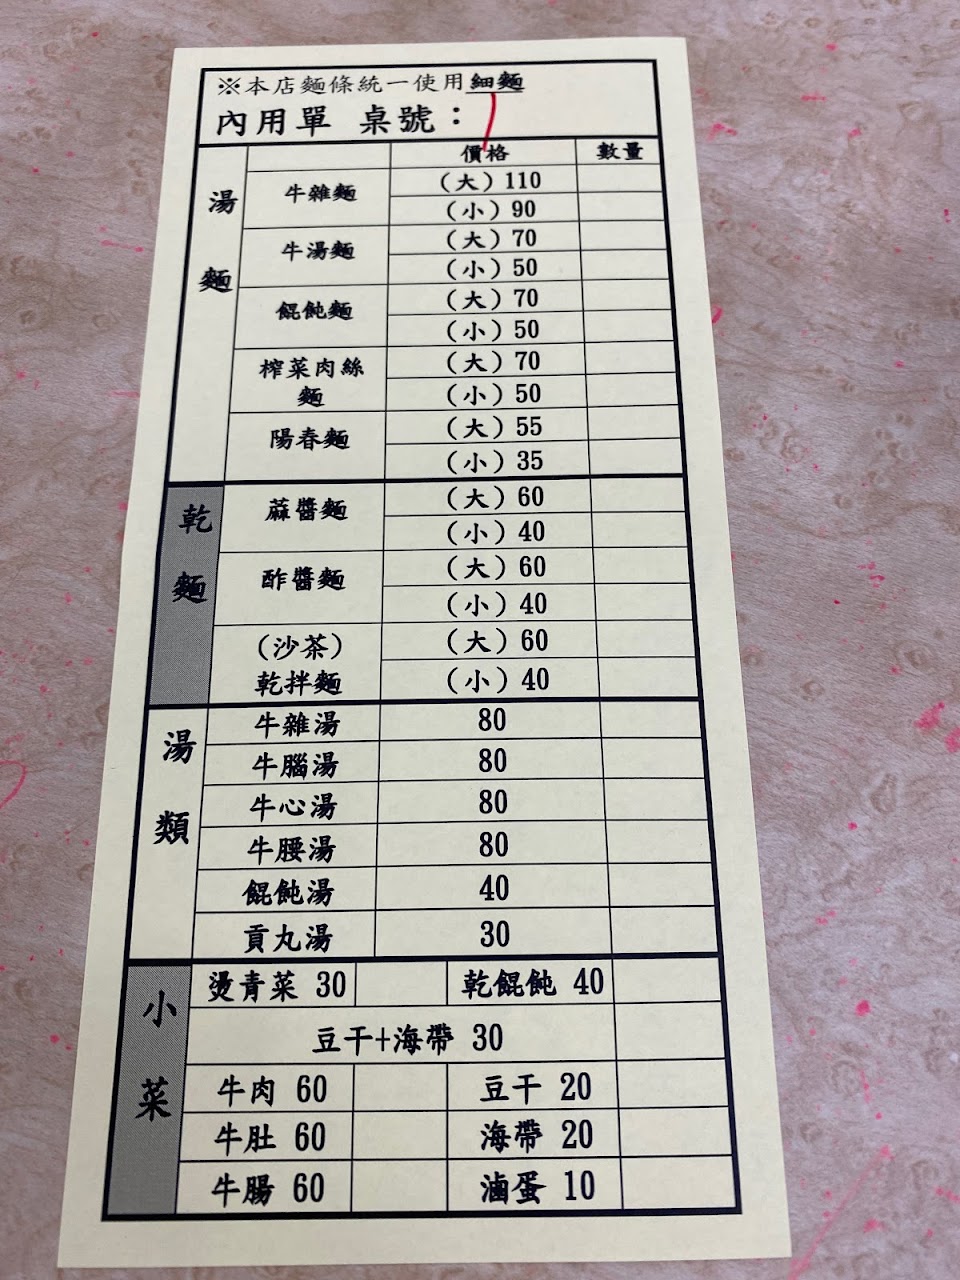 ※本店麵條統一使用細麵
內用單 桌號：
價格 數量
湯麵
牛雜麵 （大）110
（小）90
牛湯麵 （大）70
（小）50
餛飩麵 （大）70
（小）50
榨菜肉絲麵 （大）70
（小）50
陽春麵 （大）55
（小）35
乾麵
蔴醬麵 （大）60
（小）40
酢醬麵 （大）60
（小）40
（沙茶）乾拌麵 （大）60
（小）40
湯類
牛雜湯 80
牛腦湯 80
牛心湯 80
牛腰湯 80
餛飩湯 40
貢丸湯 30
小菜
燙青菜 30 乾餛飩 40
豆干+海帶 30
牛肉 60 豆干 20
牛肚 60 海帶 20
牛腸 60 滷蛋 10